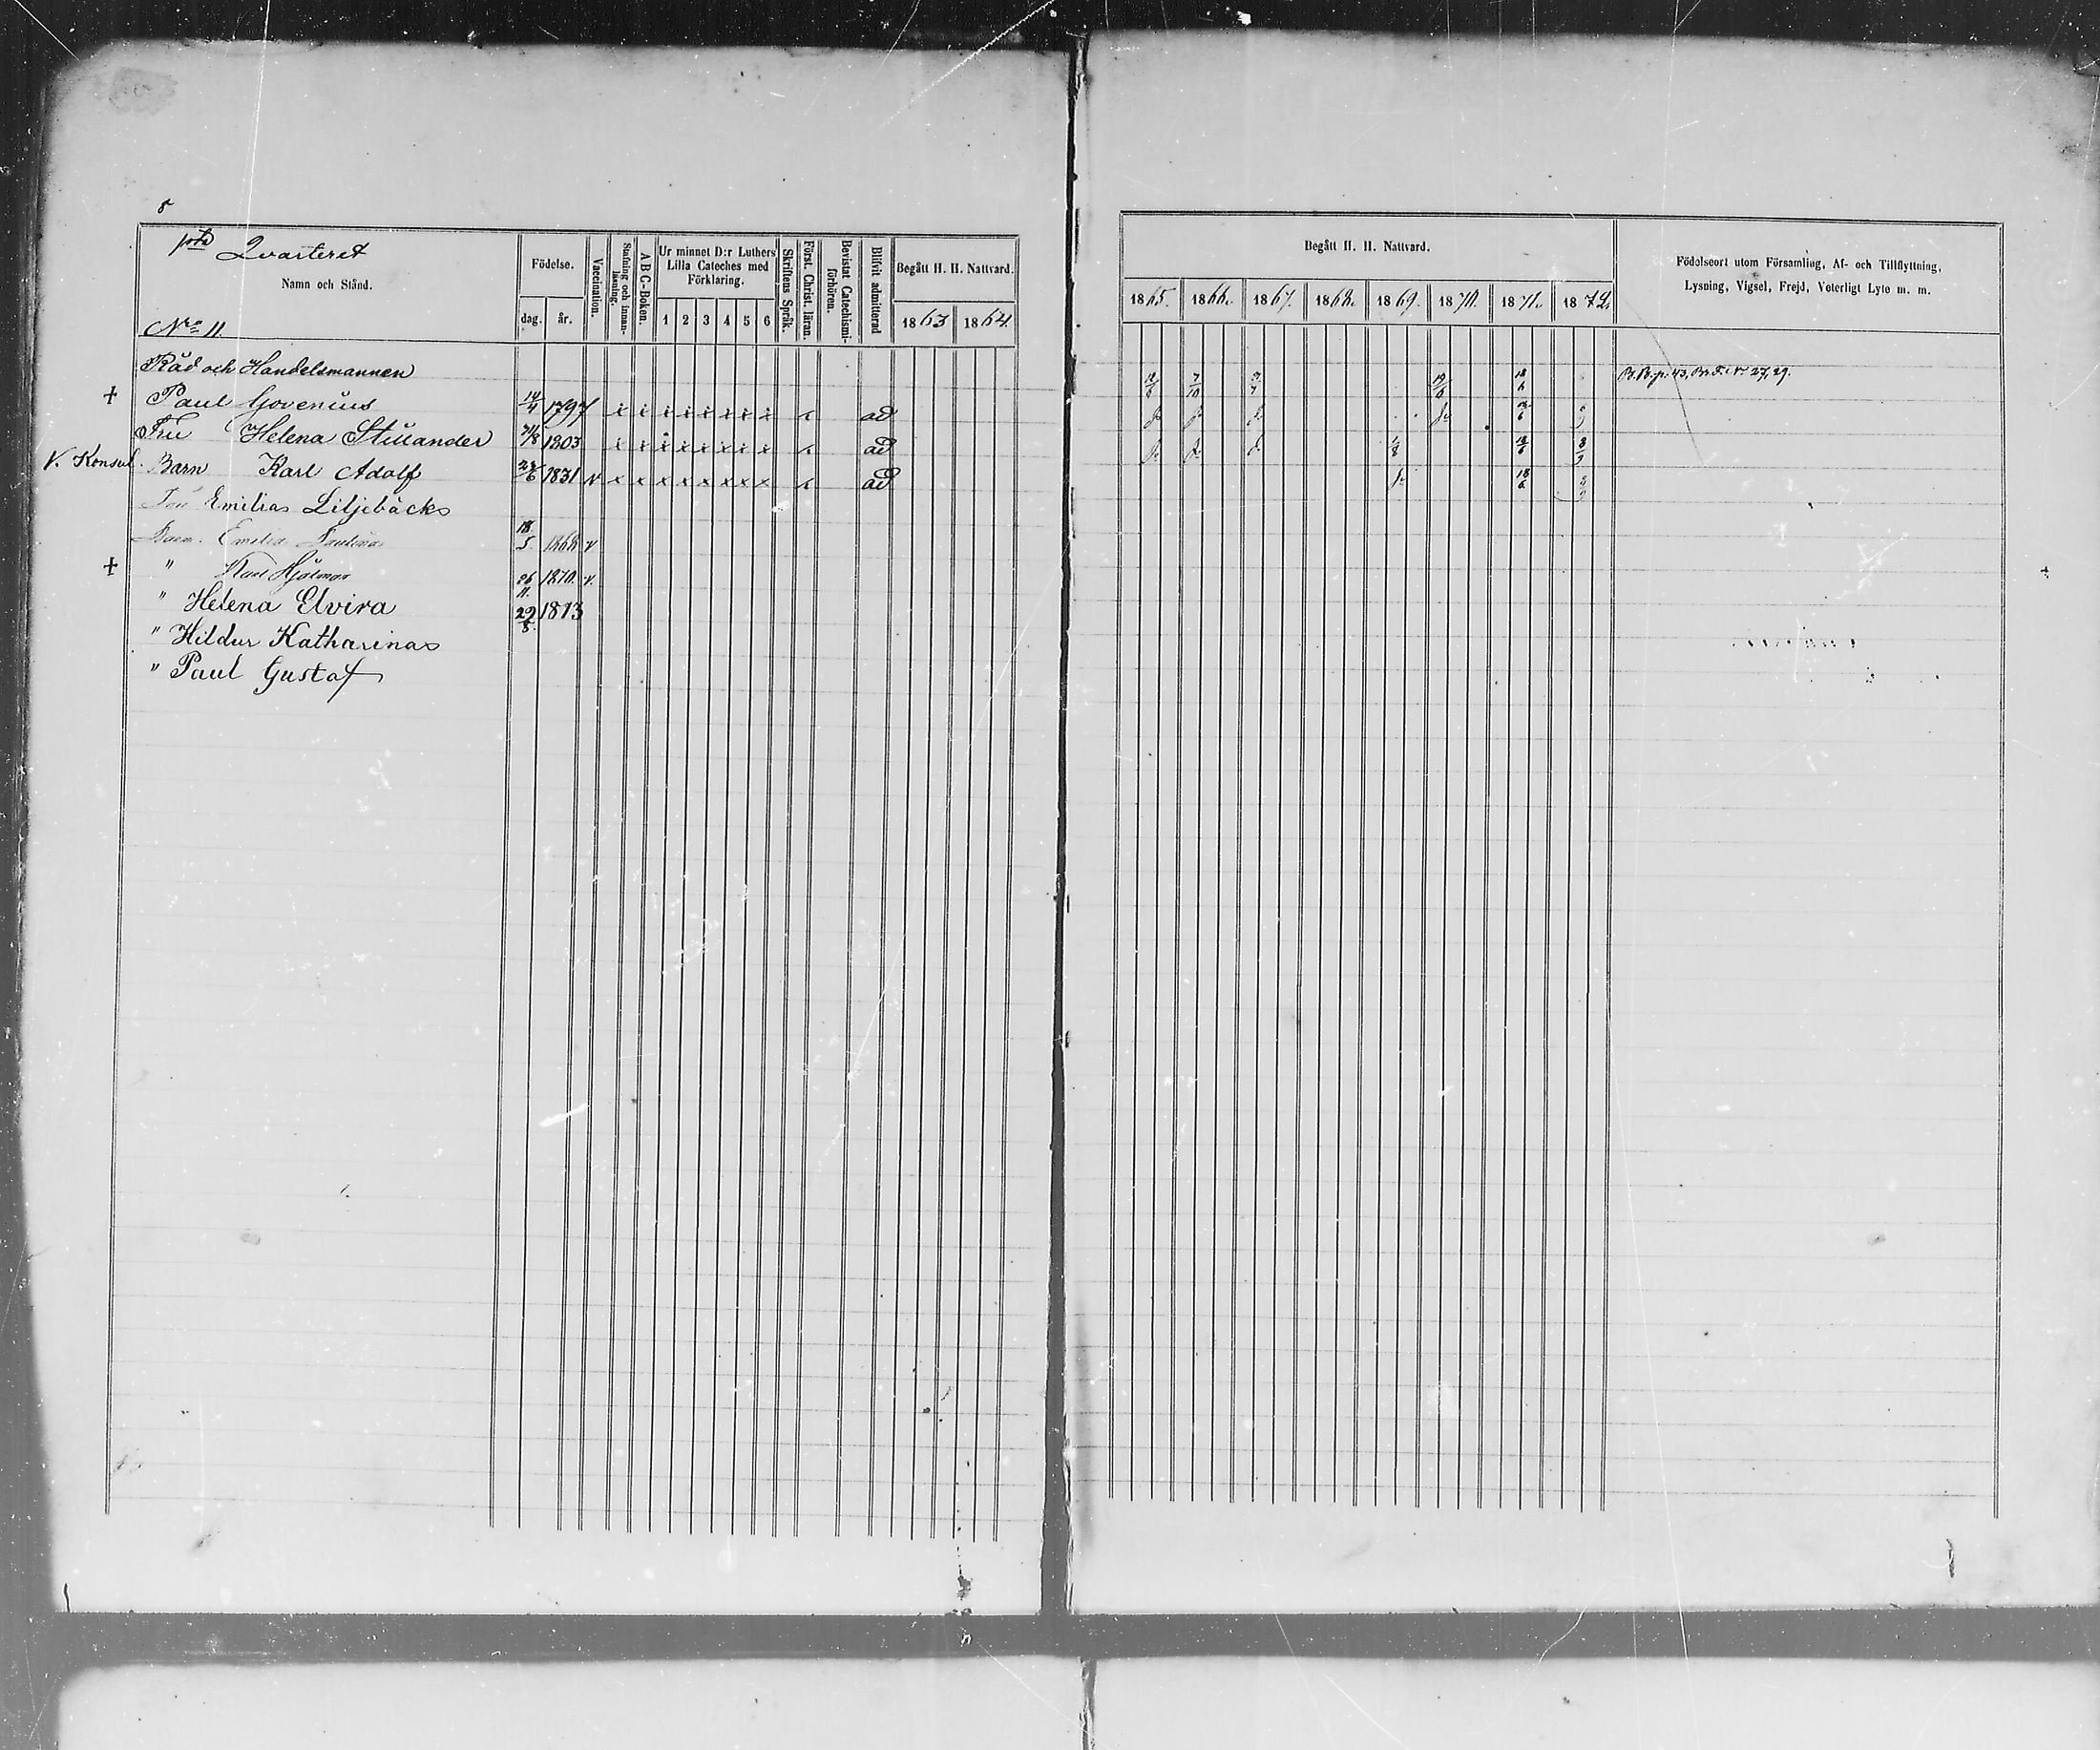 8
1sta Qvarteret
Namn och Stånd.
No 11.
Födelse.
dag. år.
Vaccination.
Stafning och innanläsning.
A B C-Boken.
Ur minnet D:r Luthers Lilla Cateches med Förklaring.
1 2 3 4 5 6
Skriftens Språk.
Först. Christ. läran.
Bevistat Catechismiförhören.
Blifvit admitterad
Begått H. H. Nattvard.
1863 1864.
Råd och Handelsmannen
+ Paul Govenius 14/4 1797 x x x x x x x x x ad
Fru Helena Stillander 1803 x x x x x x x x x ad
V. Konsul. Barn Karl Adolf 1831 v x x x x x x x x x ad
Emilia Liljebäck
Barn. Emilia Paulina 18/5 1868 v
+ " Karl Hjalmar 26/11. 1870. v.
" Helena Elvira 29/8. 1873
" Hildur Katharina
" Paul Gustaf
Begått H. H. Nattvard.
1865. 1866. 1867. 1868. 1869. 1870. 1871. 1872.
Födelseort utom Församling, Af- och Tillflyttning,
Lysning, Vigsel, Frejd, Veterligt Lyte m. m.